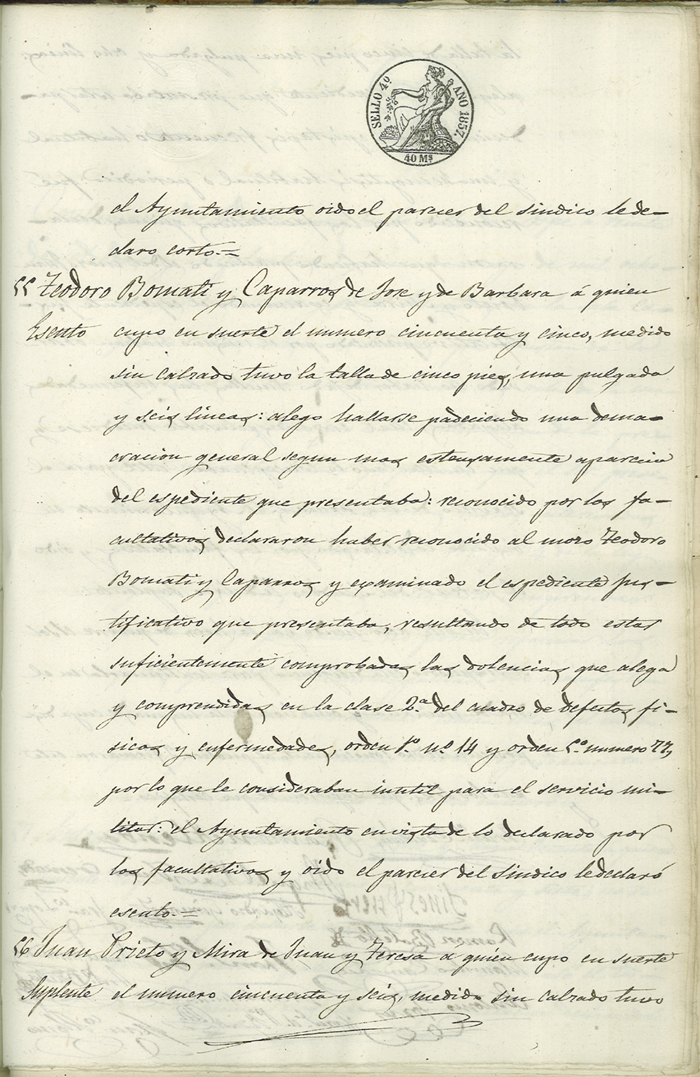 SELLO 4º AÑO 1857.
40 Ms
el Ayuntamiento oido el parecer del sindico le de-
claro corto.=
55 Teodoro Bomati y Caparros de Jose y de Barbara á quien
Esento cupo en suerte el numero cincuenta y cinco, medido
sin calzado tuvo la talla de cinco pies, una pulgada
y seis lineas: alego hallarse padeciendo una dema-
cracion general segun mas estensamente aparecia
del espediente que presentaba: reconocido por los fa-
cultativos declararon haber reconocido al mozo Teodoro
Bomati y Caparros y examinado el espediente jus-
tificativo que presentaba, resultando de todo estar
suficientemente comprobadas las dolencias que alega
y comprendidas en la clase 2ª del cuadro de defectos fi-
sicos y enfermedades, orden 1º nº 14 y orden 5º numero 73,
por lo que le consideraban inutil para el servicio mi-
litar: el Ayuntamiento en vista de lo declarado por
los facultativos y oido el parecer del Sindico le declaró
esento.=
56 Juan Prieto y Mira de Juan y Teresa a quién cupo en suerte
Suplente el numero cincuenta y seis, medido sin calzado tuvo